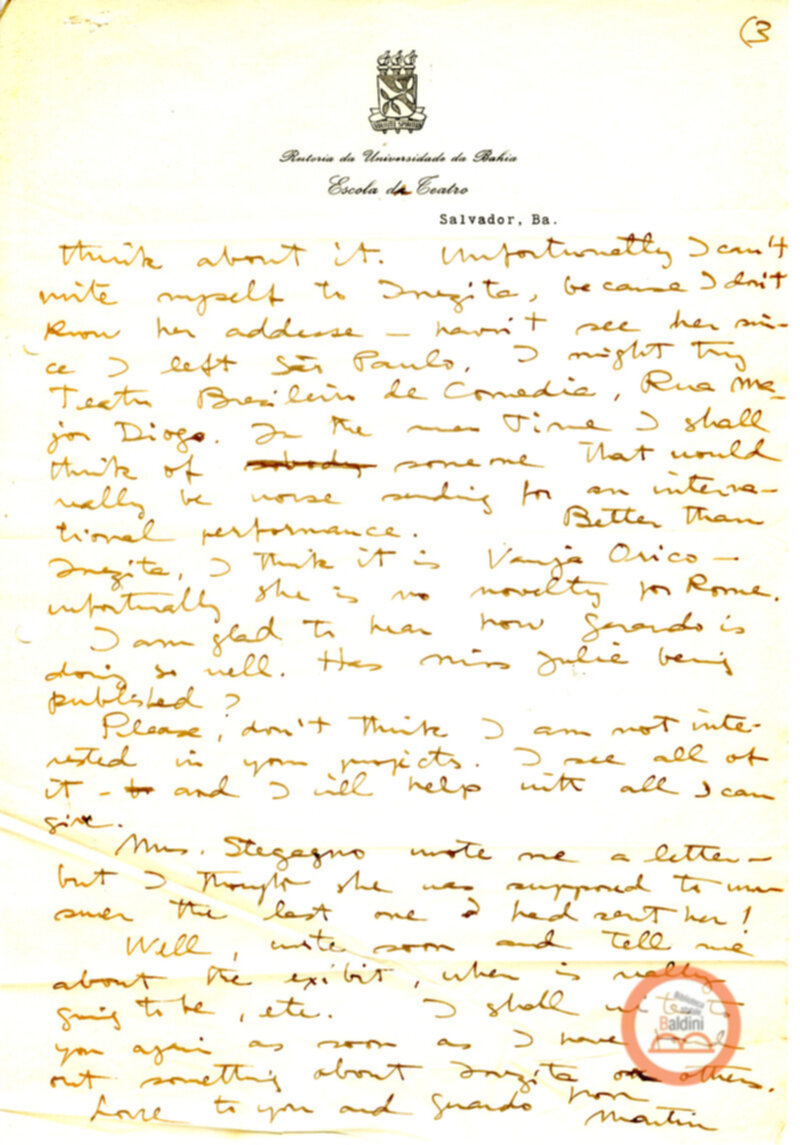 (3
VIRTUTE SPIRITUS
Reitoria da Universidade da Bahia
Escola de Teatro
Salvador, Ba.
think about it. Unfortunatly I can't
write myself to Inezita, because I don't
know her addesse – havn't see her sin-
ce I left São Paulo. I might try
Teatro Brasileiro de Comedia, Rua Ma-
jor Diogo. In the mean time I shall
think of sobody someone that would
really be worse sending for an interna-
tional performance. Better than
Inezita, I think it is Vanja Orico –
unfortunally she is no novelty for Rome.
I am glad to hear how Gerardo is
doing so well. Has Miss Julie being
published?
Please, don't think I am not inte-
rested in your projects. I see all of
it – and I will help with all I can
give.
Mrs. Stegagno wrote me a letter –
but I thought she was supposed to an-
swer the last one I had sent her!
Well, write soon and tell me
about the exibit, when is really
going to be, etc. I shall write to
you again as soon as I have
out something about Inezita or others.
Love to you and Gerardo from
Martim
Biblioteca
Baldini